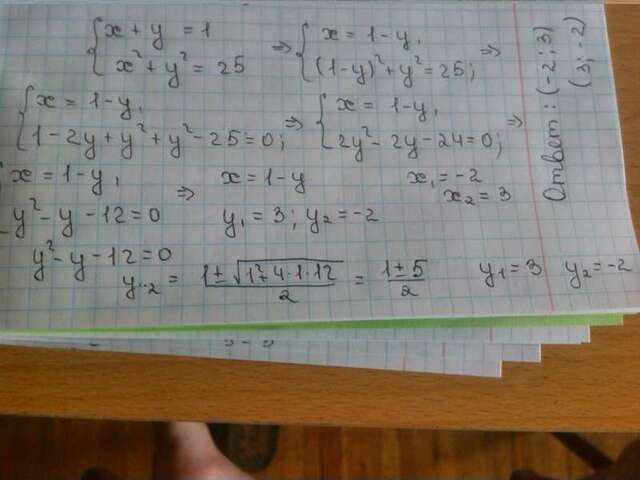 x + y = 1 ⇒ x = 1 - y, ⇒
x² + y² = 25 (1-y)² + y² = 25;
x = 1 - y, ⇒ x = 1 - y, ⇒
1 - 2y + y² + y² - 25 = 0; 2y² - 2y - 24 = 0;
x = 1 - y, ⇒ x = 1 - y x₁ = -2
y² - y - 12 = 0 y₁ = 3; y₂ = -2 x₂ = 3
y² - y - 12 = 0
y..₂ = (1 ± √(1² + 4·1·12))/2 = (1 ± 5)/2 y₁ = 3 y₂ = -2
Ответ: (-2; 3)
(3; -2)